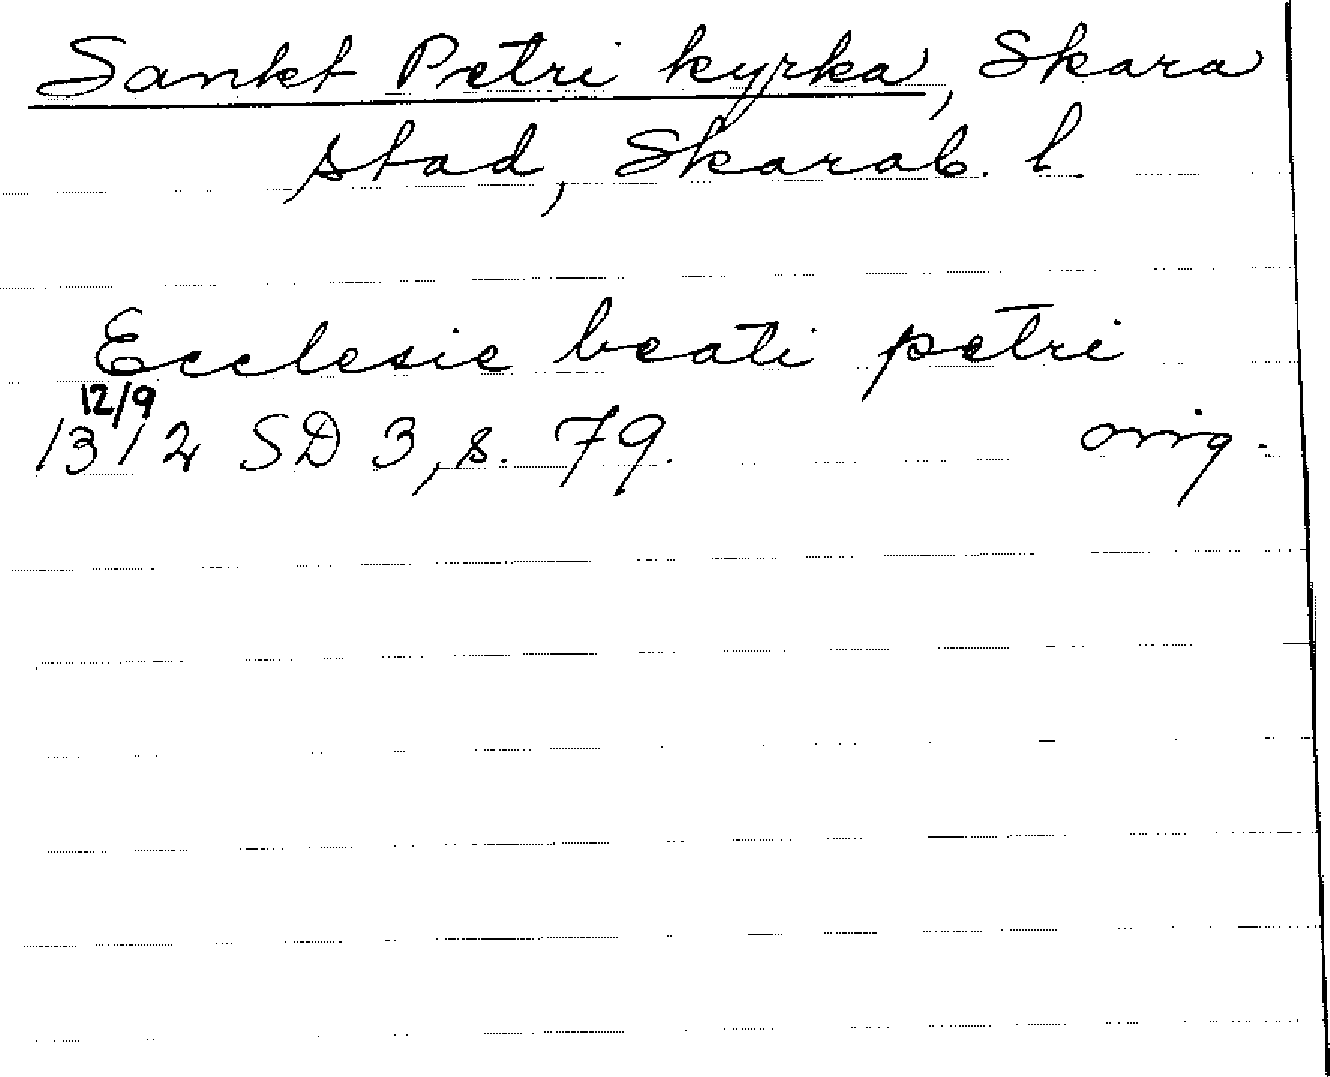 Sankt Petri kyrka, Skara
stad, Skarab. l.
Ecclesie beati petri
12/9
1312 SD 3, s. 79. orig.